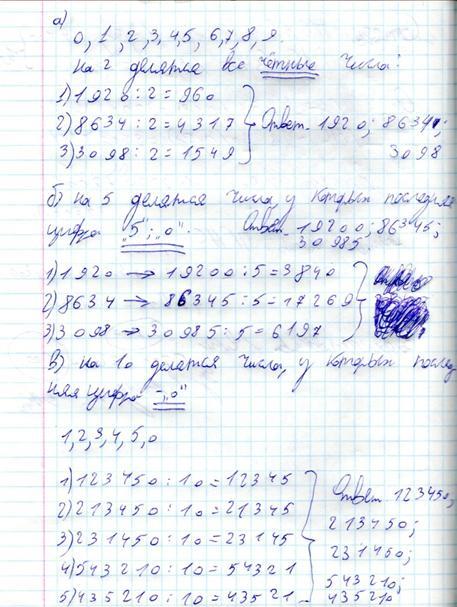 а)
0, 1, 2, 3, 4, 5, 6, 7, 8, 9.
На 2 делятся все чётные числа:
1) 1920 : 2 = 960
2) 8634 : 2 = 4317 Ответ. 1920; 8634;
3) 3098 : 2 = 1549 3098
б) на 5 делятся числа, у которых последняя
цифра "5"; "0". Ответ. 19200; 86345;
30985.
1) 1920 → 19200 : 5 = 3840
2) 8634 → 86345 : 5 = 17269
3) 3098 → 30985 : 5 = 6197
в) на 10 делятся числа, у которых послед
няя цифра - "0"
1, 2, 3, 4, 5, 0
1) 123450 : 10 = 12345 Ответ 123450;
2) 213450 : 10 = 21345 213450;
3) 231450 : 10 = 23145 231450;
4) 543210 : 10 = 54321 543210;
5) 435210 : 10 = 43521 435210